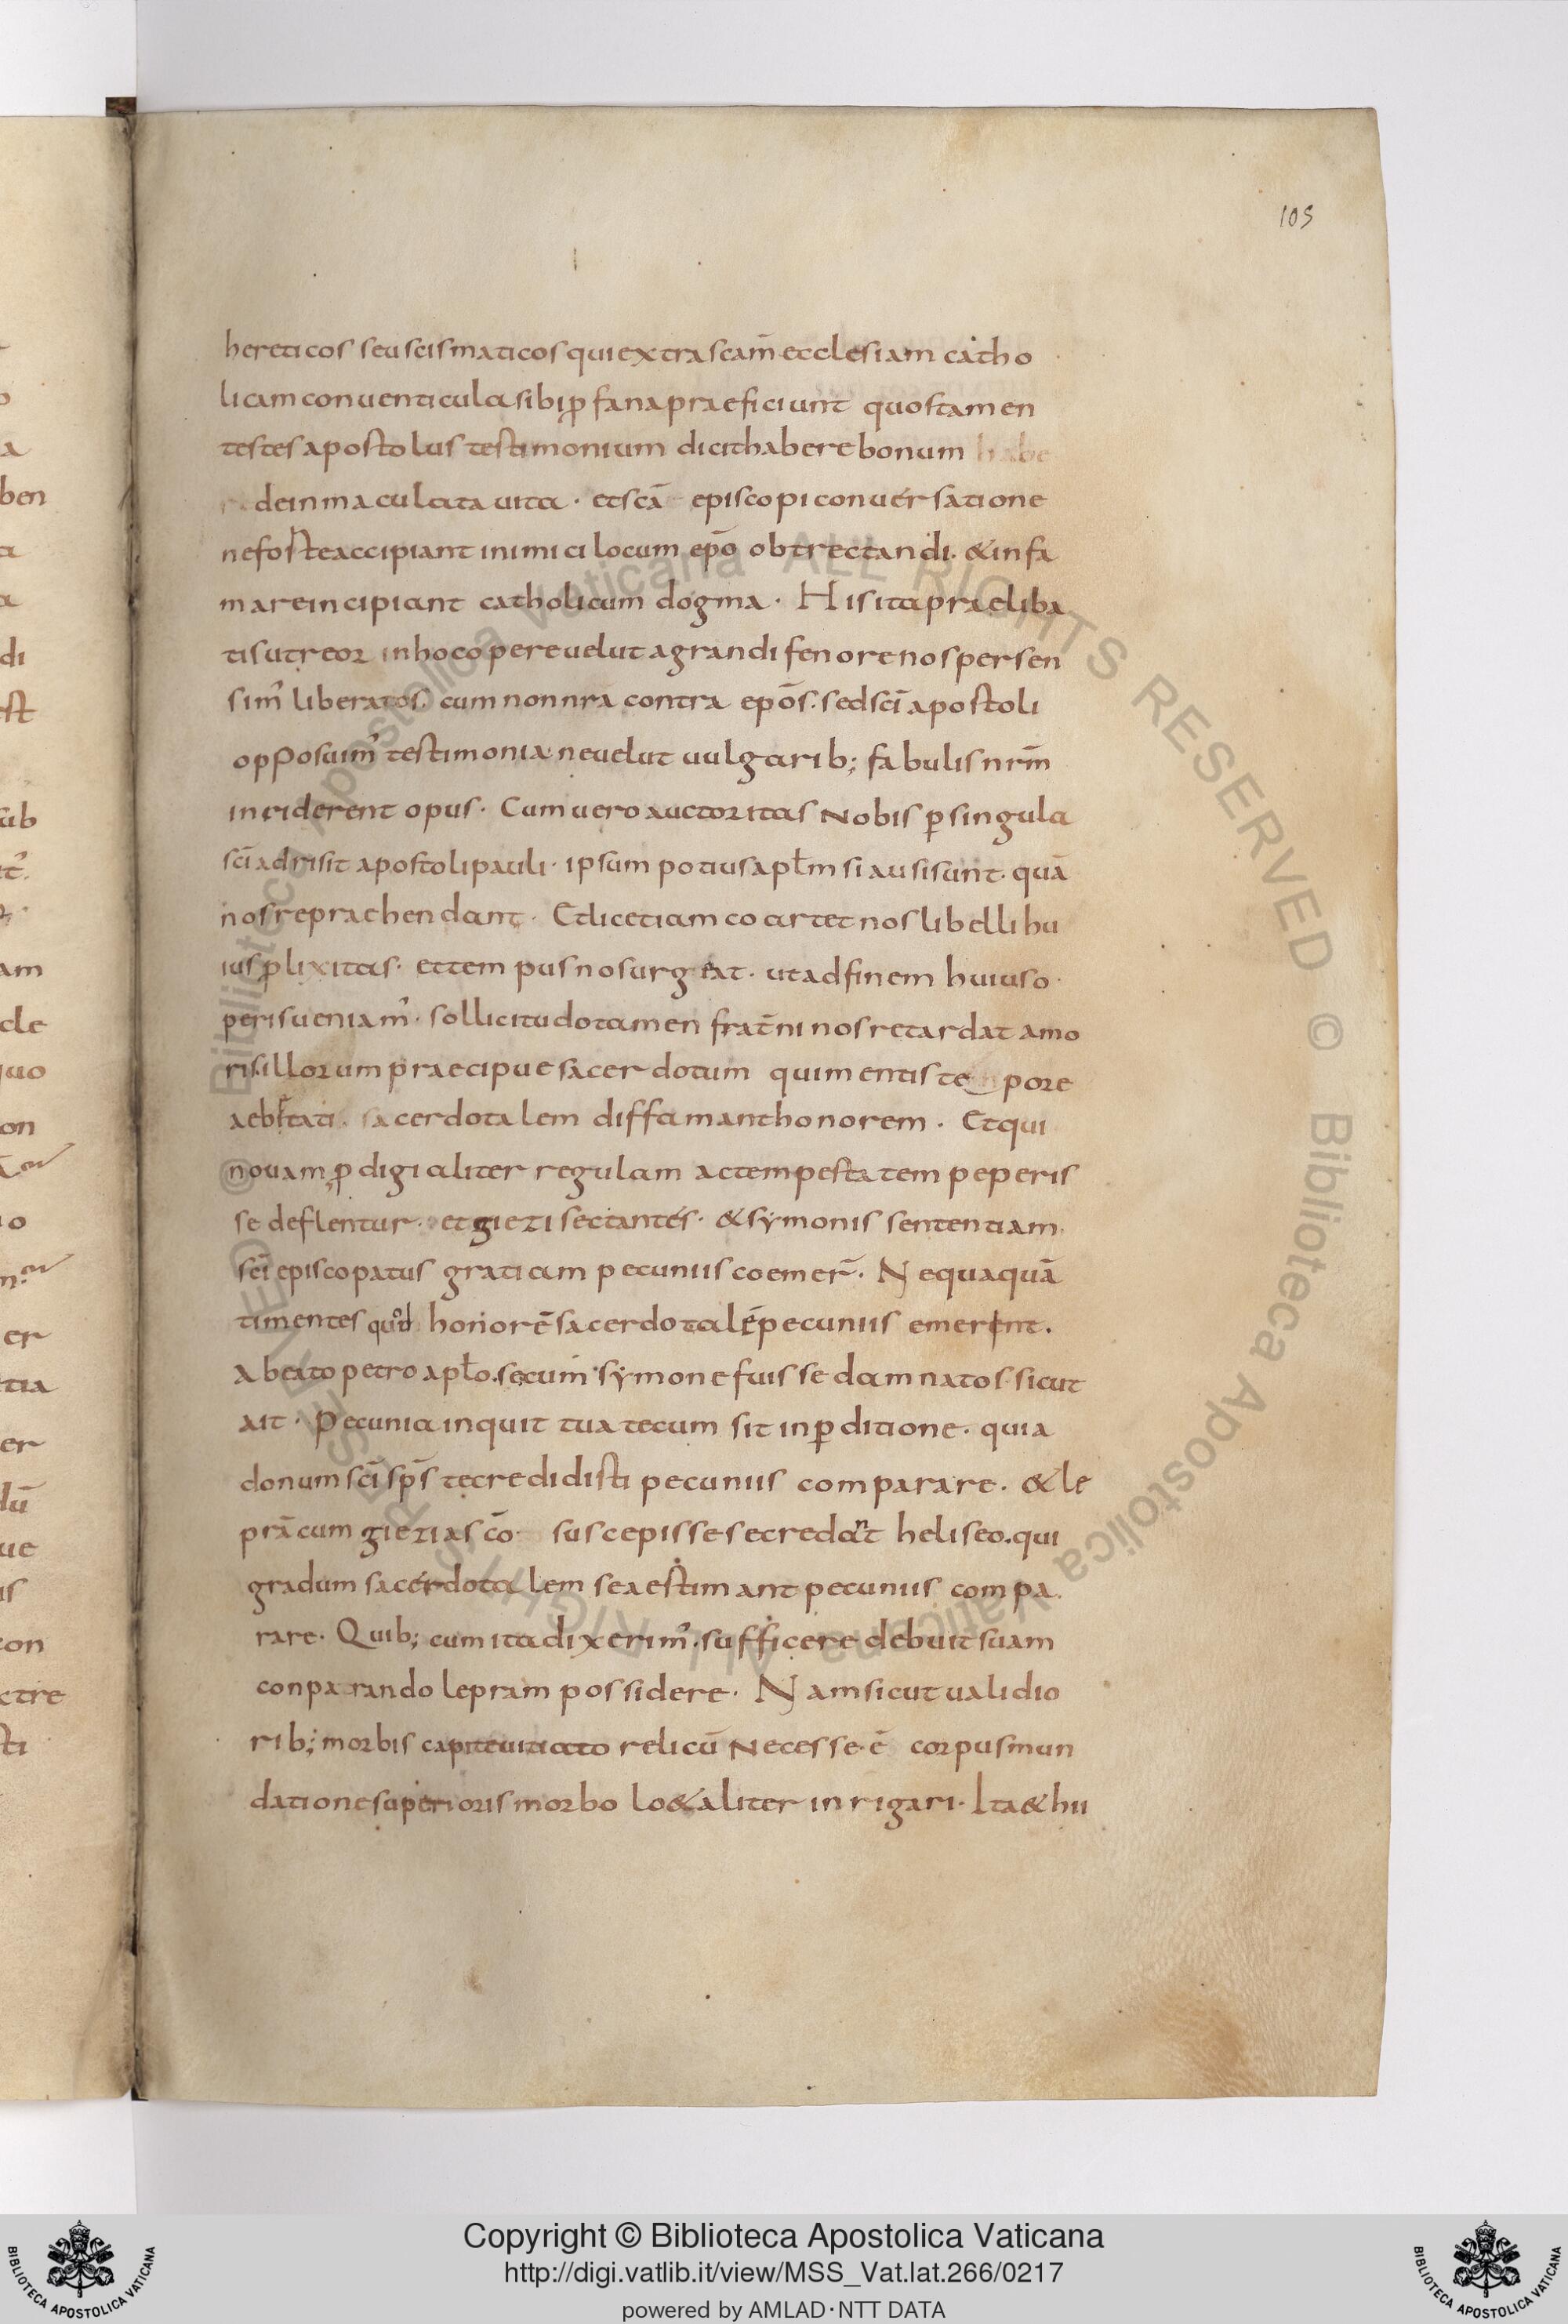 105
hereticos seu scismaticos qui extra scam̄ ecclesiam catho
licam conuenticula sibi ꝓfana praeficiunt quos tamen
testes apostolus testimonium dicit habere bonum habe
de inmaculata uita · et scā episcopi conuersatione
ne forte accipiant inimici locum ep̄o obtrectandi · & infa
mare incipiant catholicum dogma · His ita praeliba
tis ut reor in hoc opere uelut a grandi fenore nos persen
sim᾽ liberatos · cum non nr̄a contra ep̄os · sed sc̄i apostoli
opposuim᾽ testimonia ne uelut uulgarib; fabulis nr̄m
inriderent opus · Cum uero auctoritas Nobis ꝑ singula
sc̄i adrisit apostoli pauli · ipsum potius apl̄m si ausi sunt · quā
nos reprachendant · Et licet iam coartet nos libelli hu
ius ꝓlixitas · et tempus nos urgeat · ut ad finem huius o
peris ueniam᾽ · sollicitudo tamen frat̄ni nos retardat amo
ris · illorum praecipue sacerdotum qui mentis te pore
aebetati · sacerdotalem diffamant honorem · Et qui
nouam ꝓdigialiter regulam ac tempestatem peperis
se deflentur · et giezi sectantes · & symonis sententiam
sc̄i episcopatus gratiam pecuniis coemer̄ · Nequaquā
timentes quod honorē sacerdotalē pecuniis emerent ·
A beato petro apl̄o · secum symone fuisse damnatos sicut
ait · Pecunia inquit tua tecum sit in ꝑditione · quia
donum sc̄i sp̄s te credidisti pecuniis comparare · & le
prā cum giezi as c̄o suscepisse se credant heliseo · qui
gradum sacerdotalem se aestimant pecuniis compa
rare · Quib; cum ita dixerim᾽ · sufficere debuit suam
conparando lepram possidere · Nam sicut ualidio
rib; morbis capite uitiato relicū Necesse · ē corpus mun
datione superioris morbo lo&aliter inrigari · Ita & hii
Copyright © Biblioteca Apostolica Vaticana
http://digi.vatlib.it/view/MSS_Vat.lat.266/0217
powered by AMLAD·NTT DATA